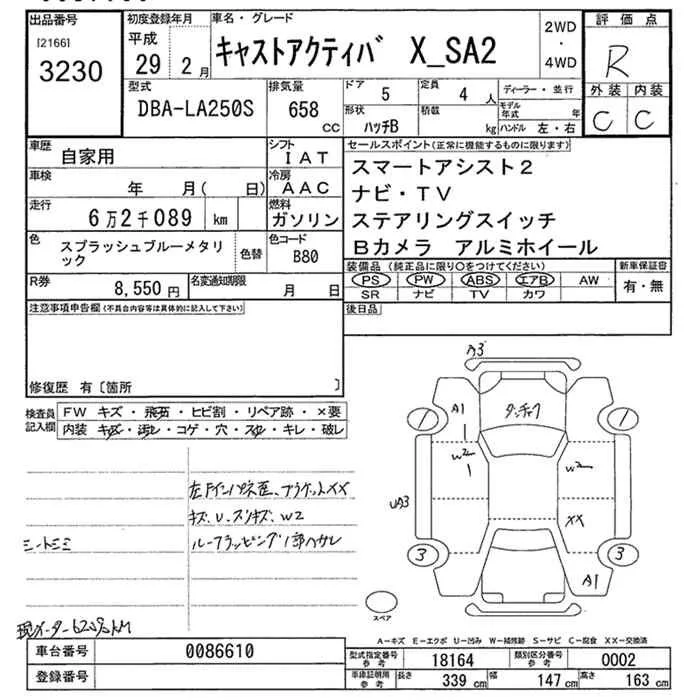 出品番号 初度登録年月 車名・グレード 2WD・4WD 評価点
[2166] 3230 平成 29 2月 キャストアクティバ X_SA2 R
型式 排気量 ドア 定員 ディーラー・並行 外装 内装
DBA-LA250S 658 CC 5 4人 モデル年式 年 C C
形状 積載 ハッチB kg ハンドル 左・右
車歴 自家用 シフト IAT セールスポイント(正常に機能するものに限ります)
車検 年 月( 日) 冷房 AAC スマートアシスト2
走行 6万2千089 km 燃料 ガソリン ナビ・TV
ステアリングスイッチ
色 スプラッシュブルーメタリック 色替 色コード B80 Bカメラ アルミホイール
R券 8,550円 名変通知期限 月 日 装備品(純正品に限り○をつけてください) 新車保証書
PS PW ABS エアB AW 有・無
SR ナビ TV カワ
注意事項申告欄(不具合内容等は具体的に記入して下さい) 後日品
修復歴 有〔箇所 〕
検査員記入欄 FW キズ・飛石・ヒビ割・リペア跡・×要
内装 キズ・汚レ・コゲ・穴・スレ・キレ・破レ
キズ、U、スリキズ、W2
A3
A1 タッチアップ
1 1
W2 W2
UA3 XX
3 3
A1
スペア
A−キズ E−エクボ U−凹み W−補修跡 S−サビ C−腐食 XX−交換済
車台番号 0086610 型式指定番号 参考 18164 類別区分番号 参考 0002
登録番号 車庫証明用 参考 長さ 339 cm 幅 147 cm 高さ 163 cm